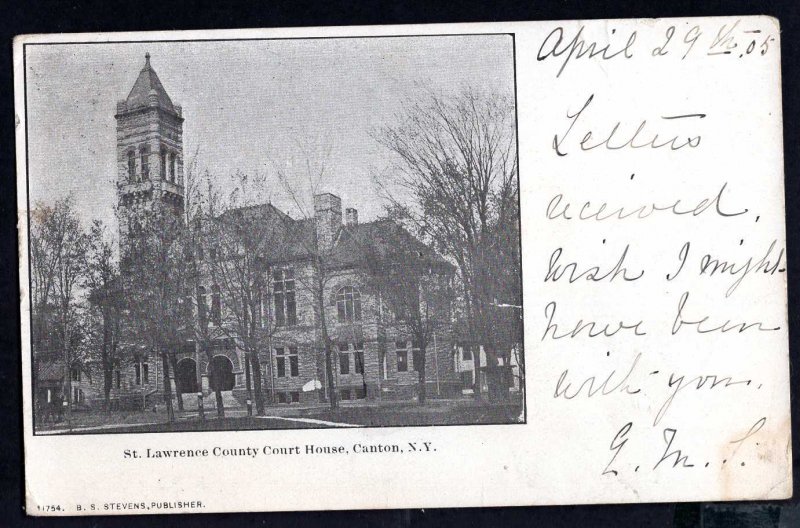 April 29th, 05
Letters
received.
Wish I might
have been
with you.
E. M. S.
St. Lawrence County Court House, Canton, N.Y.
11754. B. S. STEVENS, PUBLISHER.